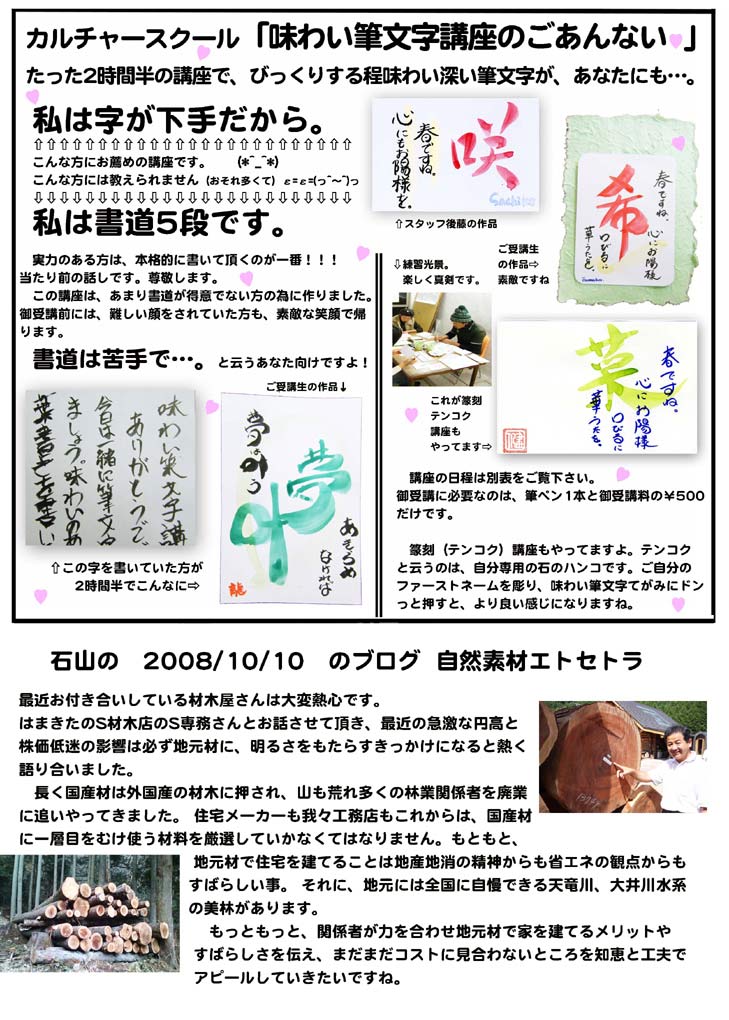 カルチャースクール「味わい筆文字講座のごあんない」
たった2時間半の講座で、びっくりする程味わい深い筆文字が、あなたにも…。
私は字が下手だから。
⇧⇧⇧⇧⇧⇧⇧⇧⇧⇧⇧⇧⇧⇧⇧⇧⇧⇧⇧⇧⇧⇧⇧⇧⇧
こんな方にお薦めの講座です。 (*^_^*)
こんな方には教えられません (おそれ多くて) ε=ε=(っ^〜^)っ
⇩⇩⇩⇩⇩⇩⇩⇩⇩⇩⇩⇩⇩⇩⇩⇩⇩⇩⇩⇩⇩⇩⇩⇩⇩
私は書道5段です。
実力のある方は、本格的に書いて頂くのが一番!!!
当たり前の話しです。尊敬します。
この講座は、あまり書道が得意でない方の為に作りました。
御受講前には、難しい顔をされていた方も、素敵な笑顔で帰
ります。
書道は苦手で…。と云うあなた向けですよ!
ご受講生の作品↓
味わい筆文字講
ありがとうで
今日は一緒に筆文字
ましょう。味わいのあ
夢は叶う
夢叶
あきらめ
なければ
龍
⇧この字を書いていた方が
2時間半でこんなに⇨
春ですね。
心にもお陽様を。
咲
Sachiko
⇧スタッフ後藤の作品
ご受講生
の作品⇨
素敵ですね
希
春ですね。
心にお陽様
口びるに
華うたを。
⇩練習光景。
楽しく真剣です。
これが篆刻
テンコク
講座も
やってます⇨
菜
春ですね。
心にお陽様
口びるに
華うたを。
講座の日程は別表をご覧下さい。
御受講に必要なのは、筆ペン1本と御受講料の¥500
だけです。
篆刻(テンコク)講座もやってますよ。テンコク
と云うのは、自分専用の石のハンコです。ご自分の
ファーストネームを彫り、味わい筆文字てがみにドン
っと押すと、より良い感じになりますね。
石山の 2008/10/10 のブログ 自然素材エトセトラ
最近お付き合いしている材木屋さんは大変熱心です。
はまきたのS材木店のS専務さんとお話させて頂き、最近の急激な円高と
株価低迷の影響は必ず地元材に、明るさをもたらすきっかけになると熱く
語り合いました。
長く国産材は外国産の材木に押され、山も荒れ多くの林業関係者を廃業
に追いやってきました。 住宅メーカーも我々工務店もこれからは、国産材
に一層目をむけ使う材料を厳選していかなくてはなりません。もともと、
地元材で住宅を建てることは地産地消の精神からも省エネの観点からも
すばらしい事。 それに、地元には全国に自慢できる天竜川、大井川水系
の美林があります。
もっともっと、関係者が力を合わせ地元材で家を建てるメリットや
すばらしさを伝え、まだまだコストに見合わないところを知恵と工夫で
アピールしていきたいですね。